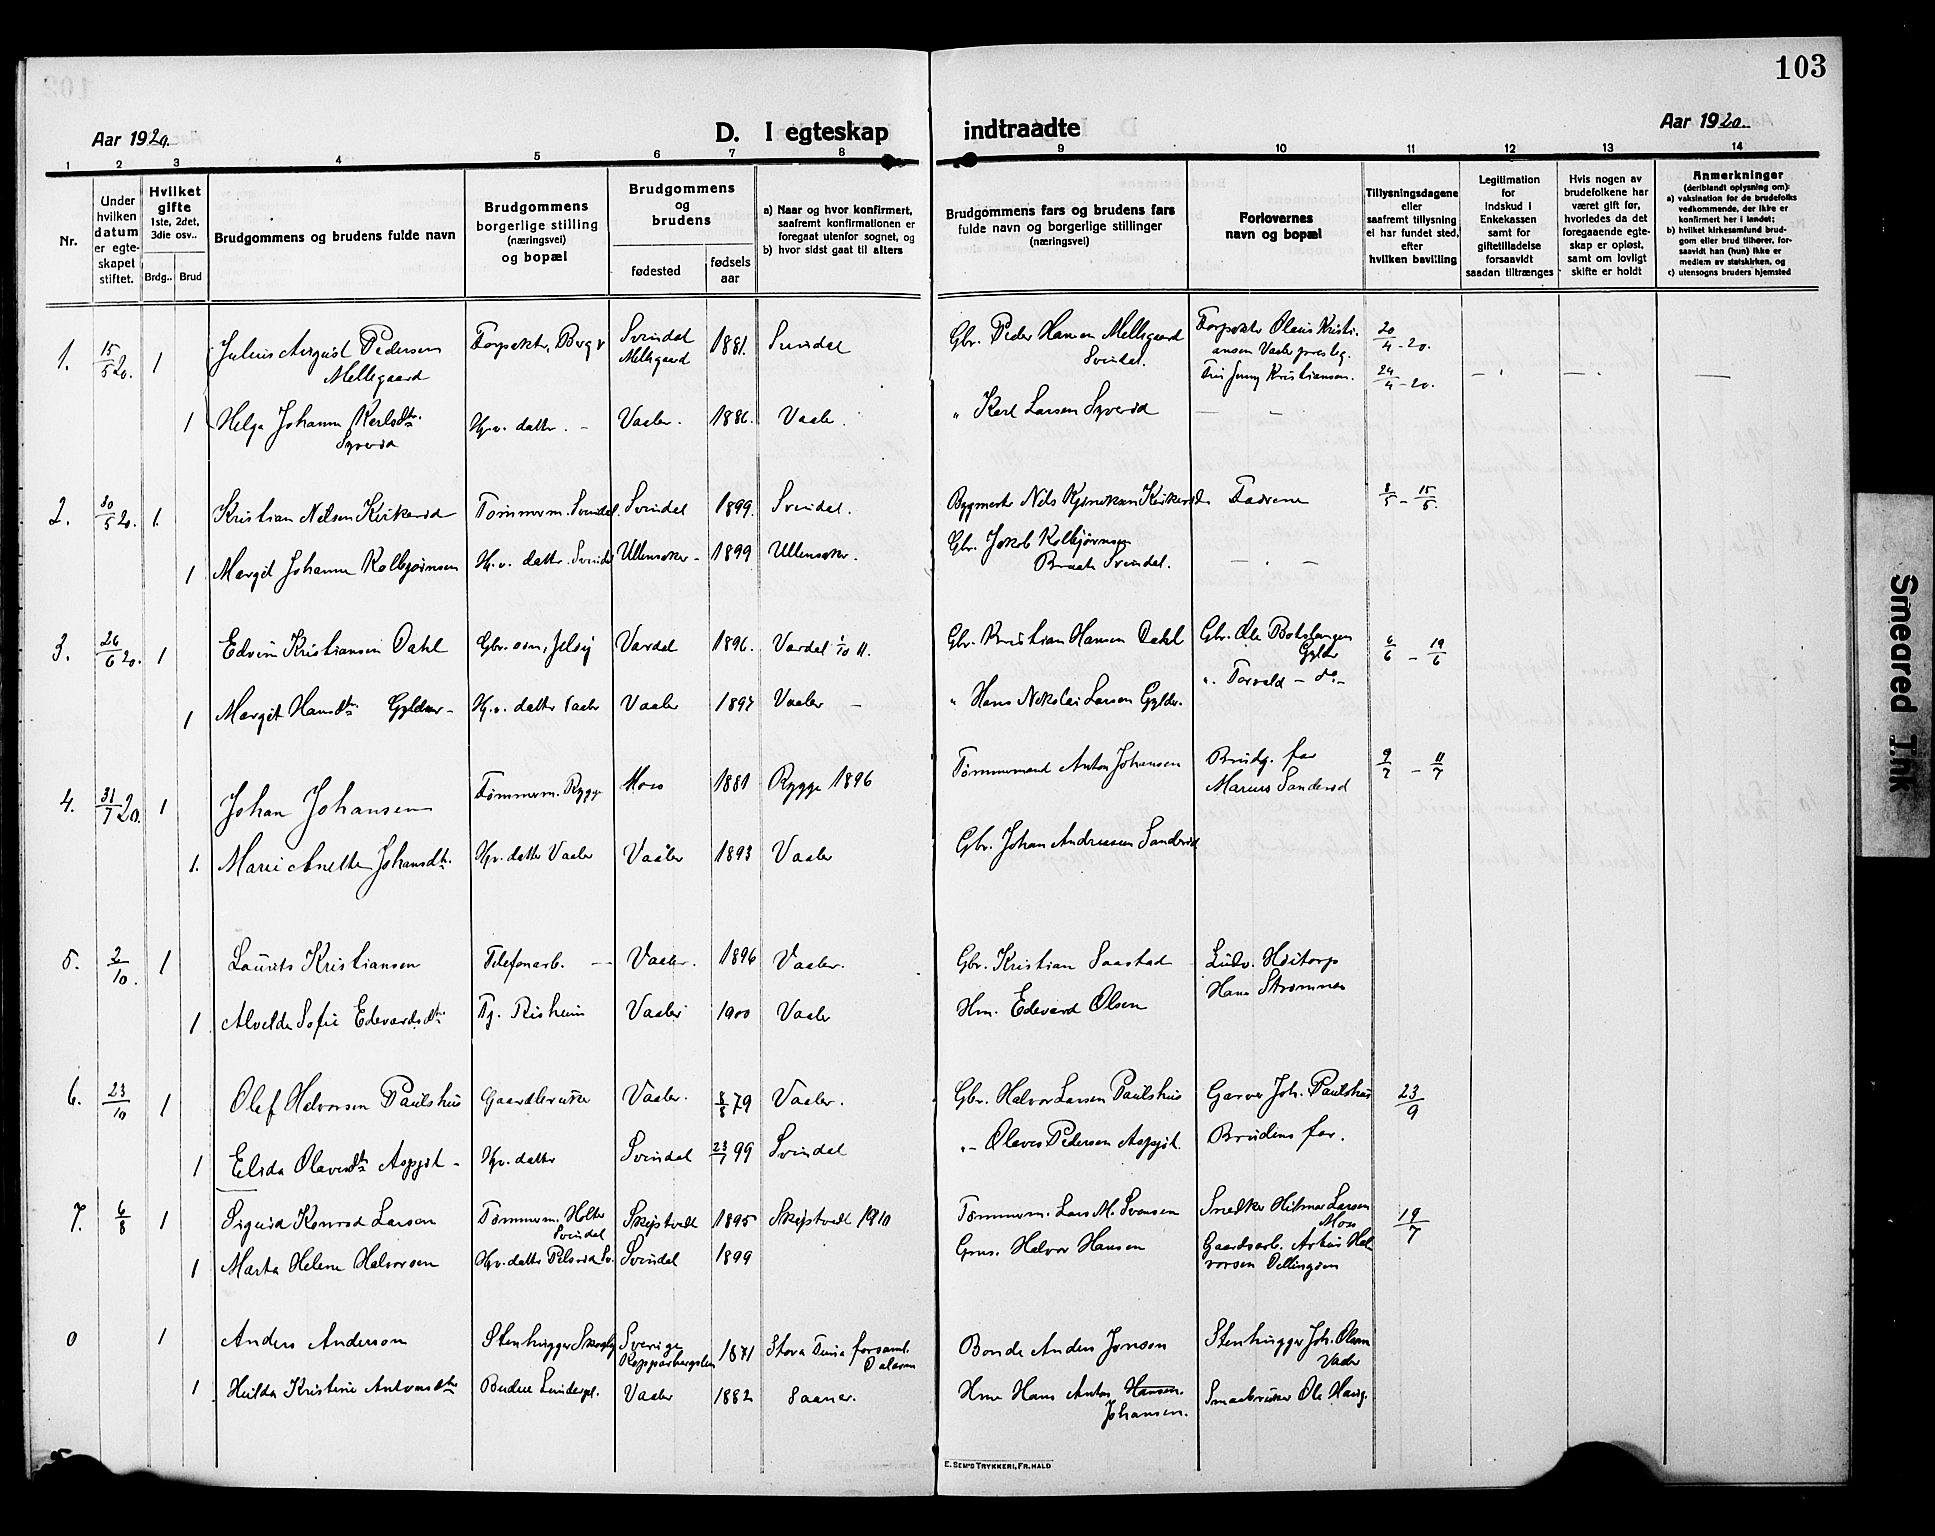 103
Aar 1920.
D. I egteskap indtraadte
Aar 1920.
1 2 3 4 5 6 7 8 9 10 11 12 13 14
Nr.
Under hvilken datum er egteskapet stiftet.
Hvilket gifte 1ste, 2det, 3die osv..
Brdg.. Brud
Brudgommens og brudens fulde navn
Brudgommens borgerlige stilling (næringsvei) og bopæl
Brudgommens og brudens
fødested
fødselsaar
a) Naar og hvor konfirmert, saafremt konfirmationen er foregaat utenfor sognet, og
b) hvor sidst gaat til alters
Brudgommens fars og brudens fars fulde navn og borgerlige stillinger (næringsvei)
Forlovernes navn og bopæl
Tillysningsdagene eller saafremt tillysning ei har fundet sted, efter hvilken bevilling
Legitimation for indskud i Enkekassen samt for giftetilladelse forsaavidt saadan tiltrænges
Hvis nogen av brudefolkene har været gift før, hvorledes da det foregaaende egteskap er opløst, samt om lovligt skifte er holdt
Anmerkninger
(deriblandt oplysning om):
a) vaksination for de brudefolks vedkommende, der ikke er konfirmert her i landet;
b) hvilket kirkesamfund brudgom eller brud tilhører, forsaavidt han (hun) ikke er medlem av statskirken, og
c) utensogns bruders hjemsted
1. 15/5 20. 1 Julius August Pedersen Mellegaard Svindal Mellegaard 1881. Svindal Gbr. Peder Hansen Mellegaard Svindal. 20/4 - 20. 24/4 - 20.
1 Helga Johanne Karlsdtr. Hv. datter. - Vaaler. 1886. Vaaler. " Karl Larsen
2. 30/5 20. 1. Kristian Nilsen Kirkerød Tømmerm. Svindal. Svindal 1899. Svindal. Nils Kirkerød Fædrene 8/5 - 15/5.
1 Margit Johanne Kolbjørnsen Hv. datter. Svindal Ullensaker - 1899 Ullensaker. Gbr. Jakob Kolbjørnsen Braate Svindal.
3. 26/6 20. 1 Edvin Kristiansen Dahl Gbr. søn, Jeløy Vardal 1896. Vardal 1/10 11. Gbr. Kristian Hansen Dahl Gbr. Ole Gylder 6/6 - 19/6
1 Margit Hansdtr. Gylder - Hv. datter Vaaler Vaaler 1897 Vaaler - " Hans Nikolai Larsen Gylder. ". Torvald - do -
4. 31/7 20. 1 Johan Johansen Tømmerm. Rygge Moss 1881 Rygge 1896 Tømmermand Anton Johansen Brudg. far Marius Sanderød 9/7 - 11/7
1. Marie Anette Johansdtr. Hv. datter Vaaler Vaaler 1893 Vaaler Gbr. Johan Andreassen Sanderød
5. 2/10. 1 Laurits Kristiansen Telefonarb. - Vaaler. 1896 Vaaler. Gbr. Kristian Saastad Ludv. Høitorp Hans Strømnes
1 Alvilde Sofie Edevardsdtr. Tj. Risheim Vaaler 1900 Vaaler Hm. Edevard Olsen
6. 23/10 1 Olef Halvorsen Paulshus Gaardbruker Vaaler. 8/8 79 Vaaler. Gbr. Halvor Larsen Paulshus Garver Joh. Paulshus 23/9
1 Elida Olavesdtr. - Hv. datter Svindal 23/7 99 Svindal "- Olaves Pedersen Brudens far.
7. 6/8 1 Sigurd Konrad Larsen Tømmerm. Holter Svindal Skiptvedt 1895 Skiptvedt 1910 Tømmerm. Lars M. Svensen Snedker Hilmar Larsen Moss 19/7
1 Marta Helene Halvorsen Hv. datter Svindal 1899 Halvor Hansen Gaardsarb. Halvorsen
0 1 Anders Anderson Stenhugger Sverige Kopparbergslen 1871 Stora Tuna forsaml. Dalarne Bonde Anders Jonson Stenhugger Joh. Olsen
1 Hulda Kristine Antonsdtr Vaaler 1882 Saaner. Hm Hans Anton Hansen. Johansen. Smaabruker Ole Haug.
E. SEM'S TRYKKERI, FR.HALD
Smeared Ink